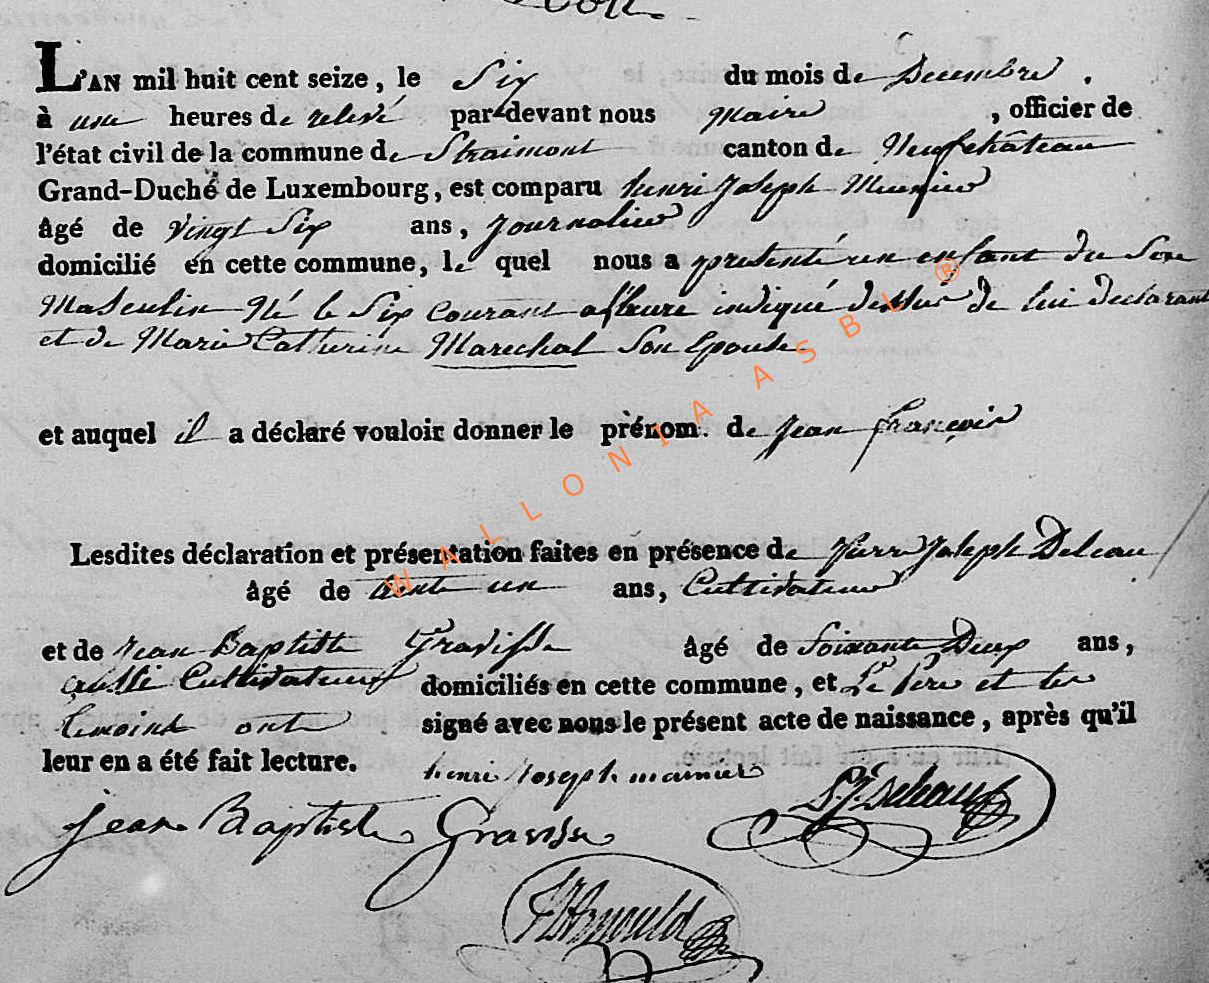 L'AN mil huit cent seize, le Six du mois de Decembre.
à une heures de relevé par-devant nous Maire, officier de
l'état civil de la commune de Straimont canton de Neufchâteau
Grand-Duché de Luxembourg, est comparu henri Joseph
âgé de vingt Six ans, journalier
domicilié en cette commune, le quel nous a presenté un enfant du Sexe
Masculin Né le Six courant a l'heure indiqué dessus de lui declarant
et de Marie Catherine Marechal Son Epouse
et auquel il a déclaré vouloir donner le prénom. de jean françois
Lesdites déclaration et présentation faites en présence de Pierre Joseph Deleau
âgé de trente un ans, Cultivateur
et de jean Baptiste Gravisse âgé de Soixante Deux ans,
aussi Cultivateur domiciliés en cette commune, et Le Pere et les
temoins ont signé avec nous le présent acte de naissance, après qu'il
leur en a été fait lecture.
henri Joseph
P.J. Deleau
jean Baptiste Gravisse
Arnould
WALLONIA ASBL ®